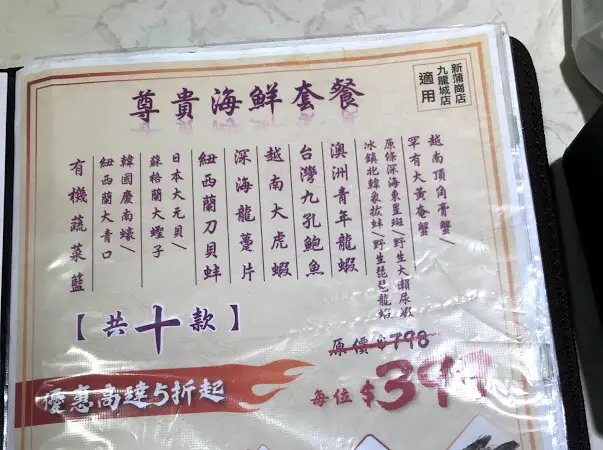 尊貴海鮮套餐
新蒲崗店
九龍城店
適用
越南頂角膏蟹/
罕有大黃奄蟹
原條深海東星斑/野生大瀨尿蝦
冰鎮北韓象拔蚌/野生琵琶龍蝦
澳洲青年龍蝦
台灣九孔鮑魚
越南大虎蝦
深海龍躉片
紐西蘭刀貝蚌
日本大元貝/
蘇格蘭大蟶子
韓國慶南蠔/
紐西蘭大青口
有機蔬菜籃
【共十款】
原價$798
優惠高達5折起
每位$39